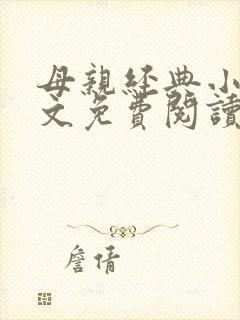 母親經典小
文免費閱讀
詹倩